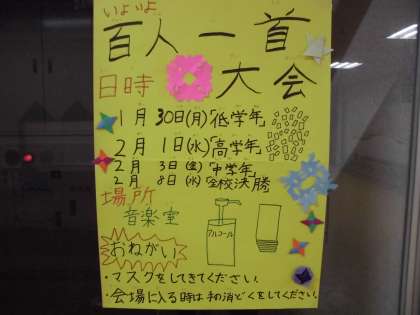 いよいよ
百人一首
日時 大会
1月30日(月)「低学年」
2月1日(水)「高学年」
2月3日(金)「中学年」
2月8日(水)「全校決勝」
場所
音楽室
アルコール
おねがい
・マスクをしてきてください.
・会場に入る時は手の消どくをしてください.